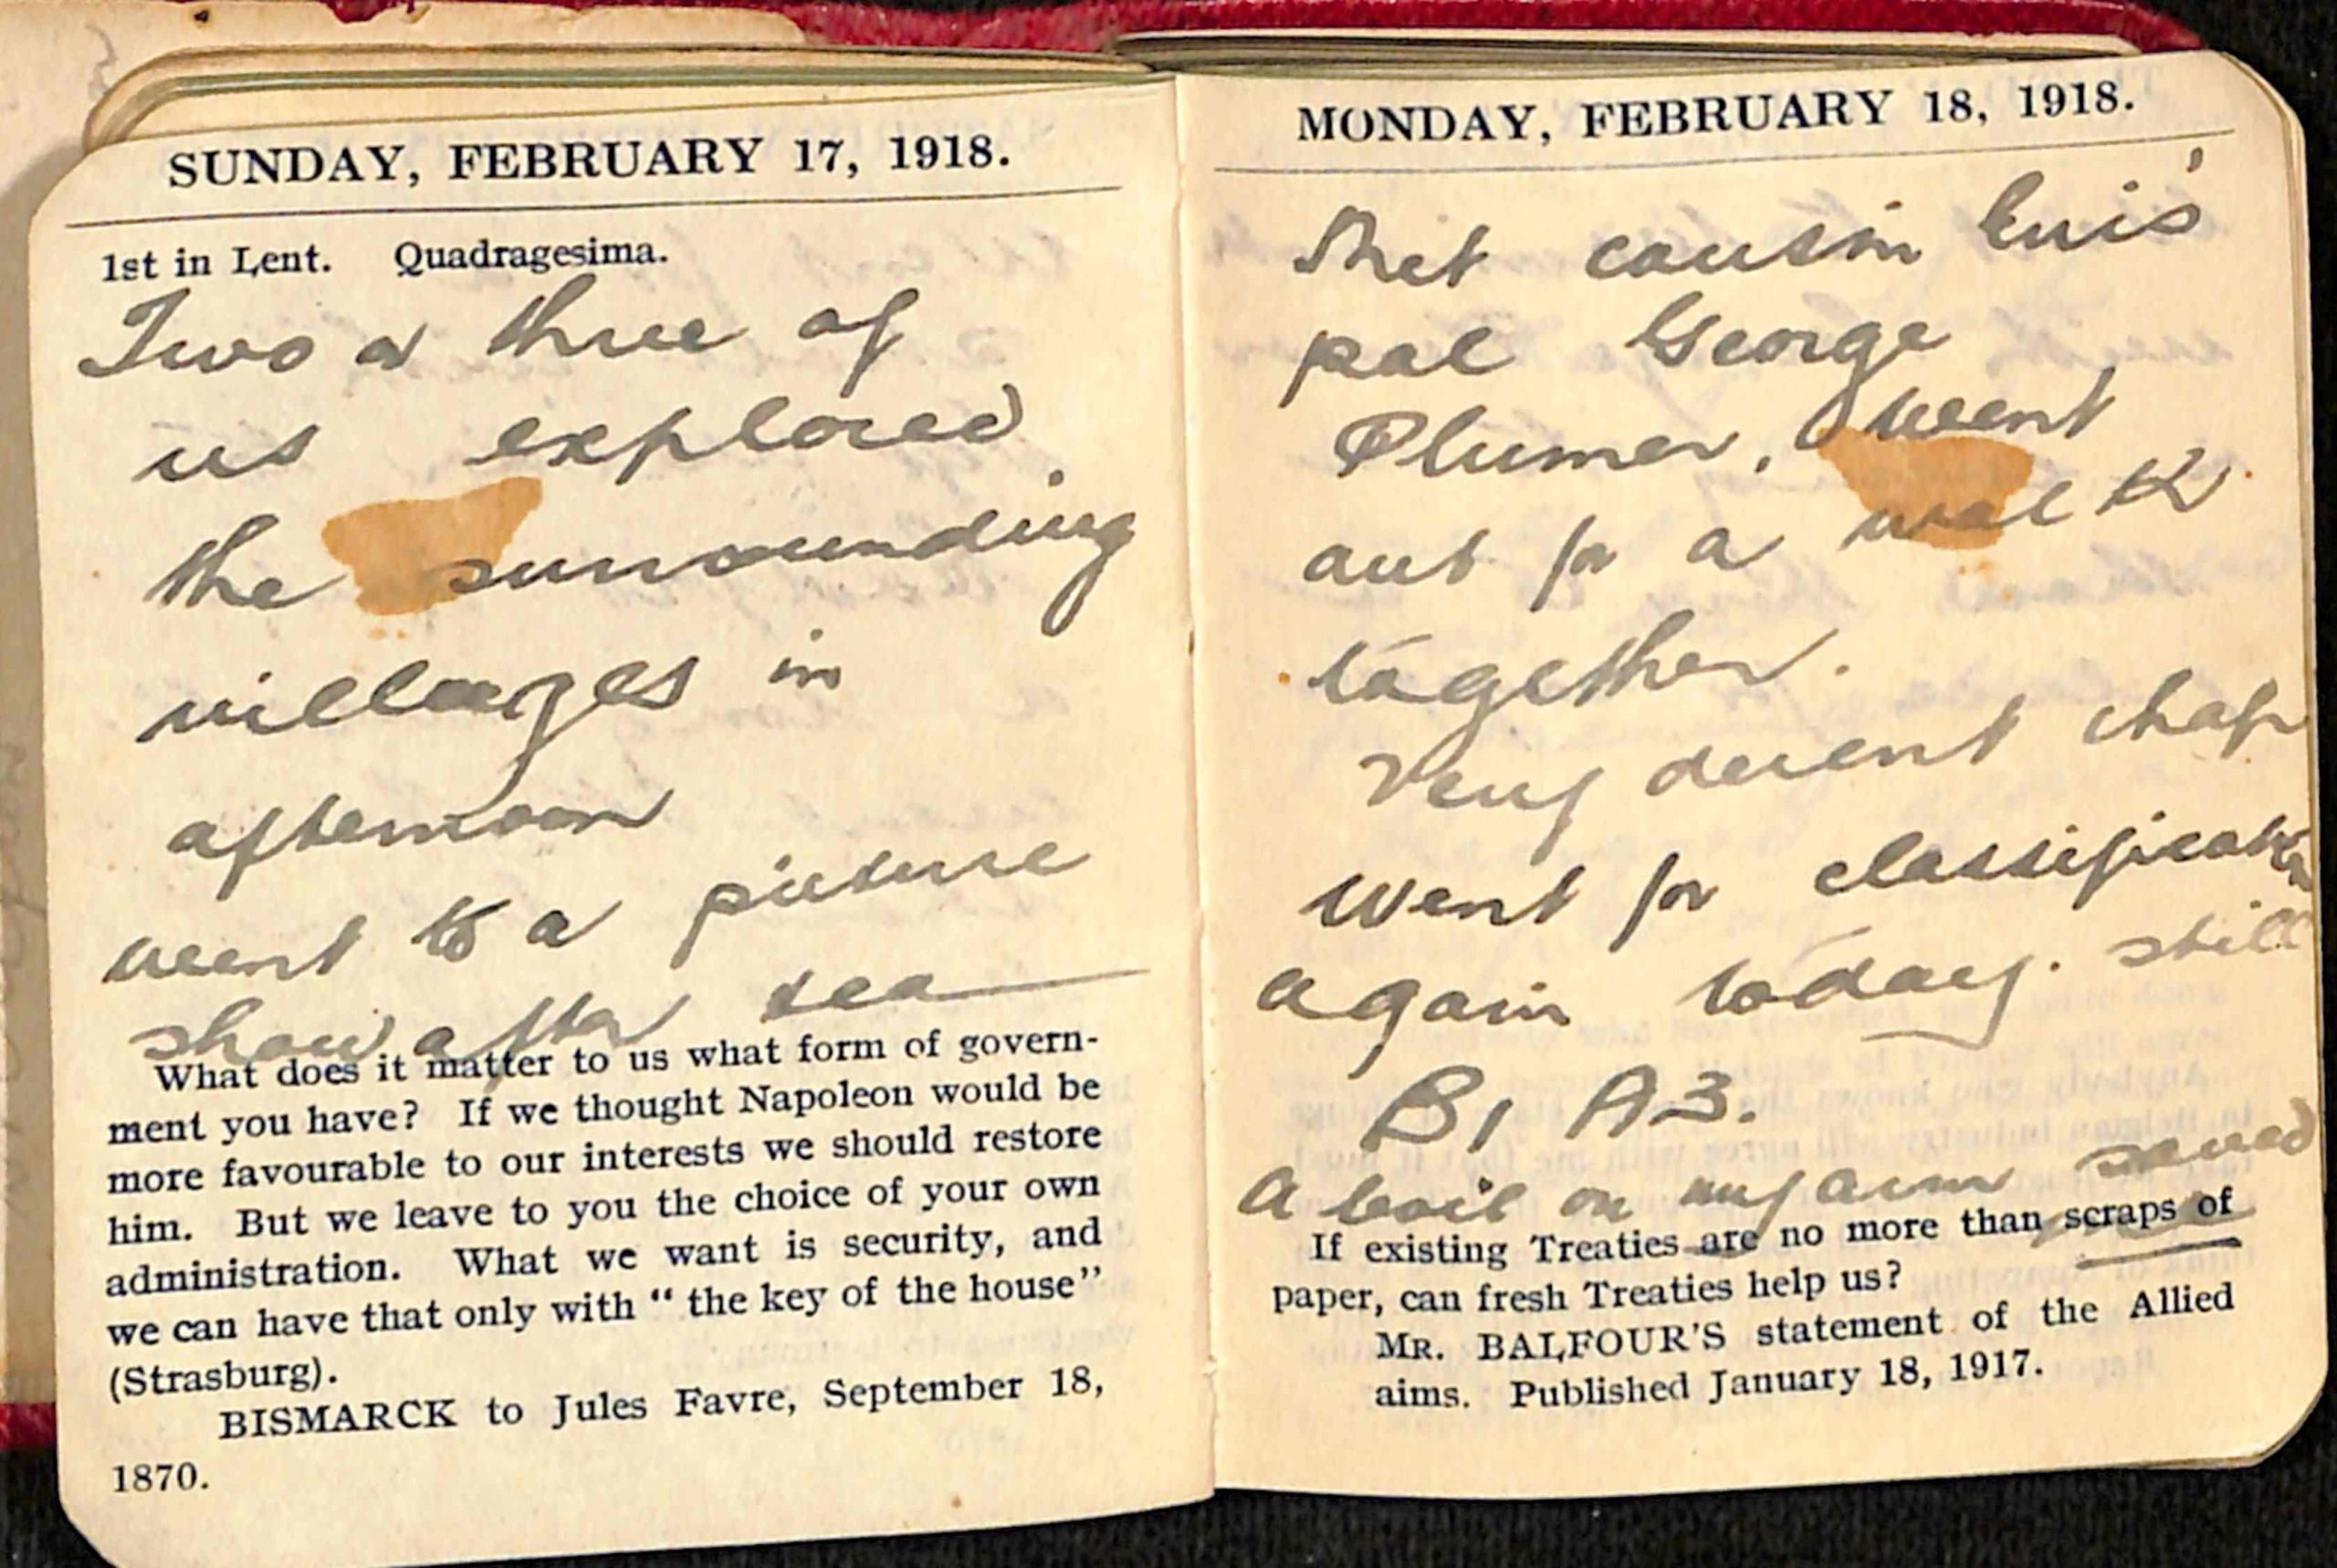 SUNDAY, FEBRUARY 17, 1918.
1st in Lent. Quadragesima.
Two or three of
us explored
the surrounding
villages in
afternoon
went to a picture
show after tea
What does it matter to us what form of govern-
ment you have? If we thought Napoleon would be
more favourable to our interests we should restore
him. But we leave to you the choice of your own
administration. What we want is security, and
we can have that only with “ the key of the house”
(Strasburg).
BISMARCK to Jules Favre, September 18,
1870.
MONDAY, FEBRUARY 18, 1918.
Met cousin
pal George
Plumer, went
out for a walk
together.
Very decent chap
Went for classification
again today. still
B1 A3.
A boil on my arm saved
If existing Treaties are no more than scraps of
paper, can fresh Treaties help us?
MR. BALFOUR'S statement of the Allied
aims. Published January 18, 1917.